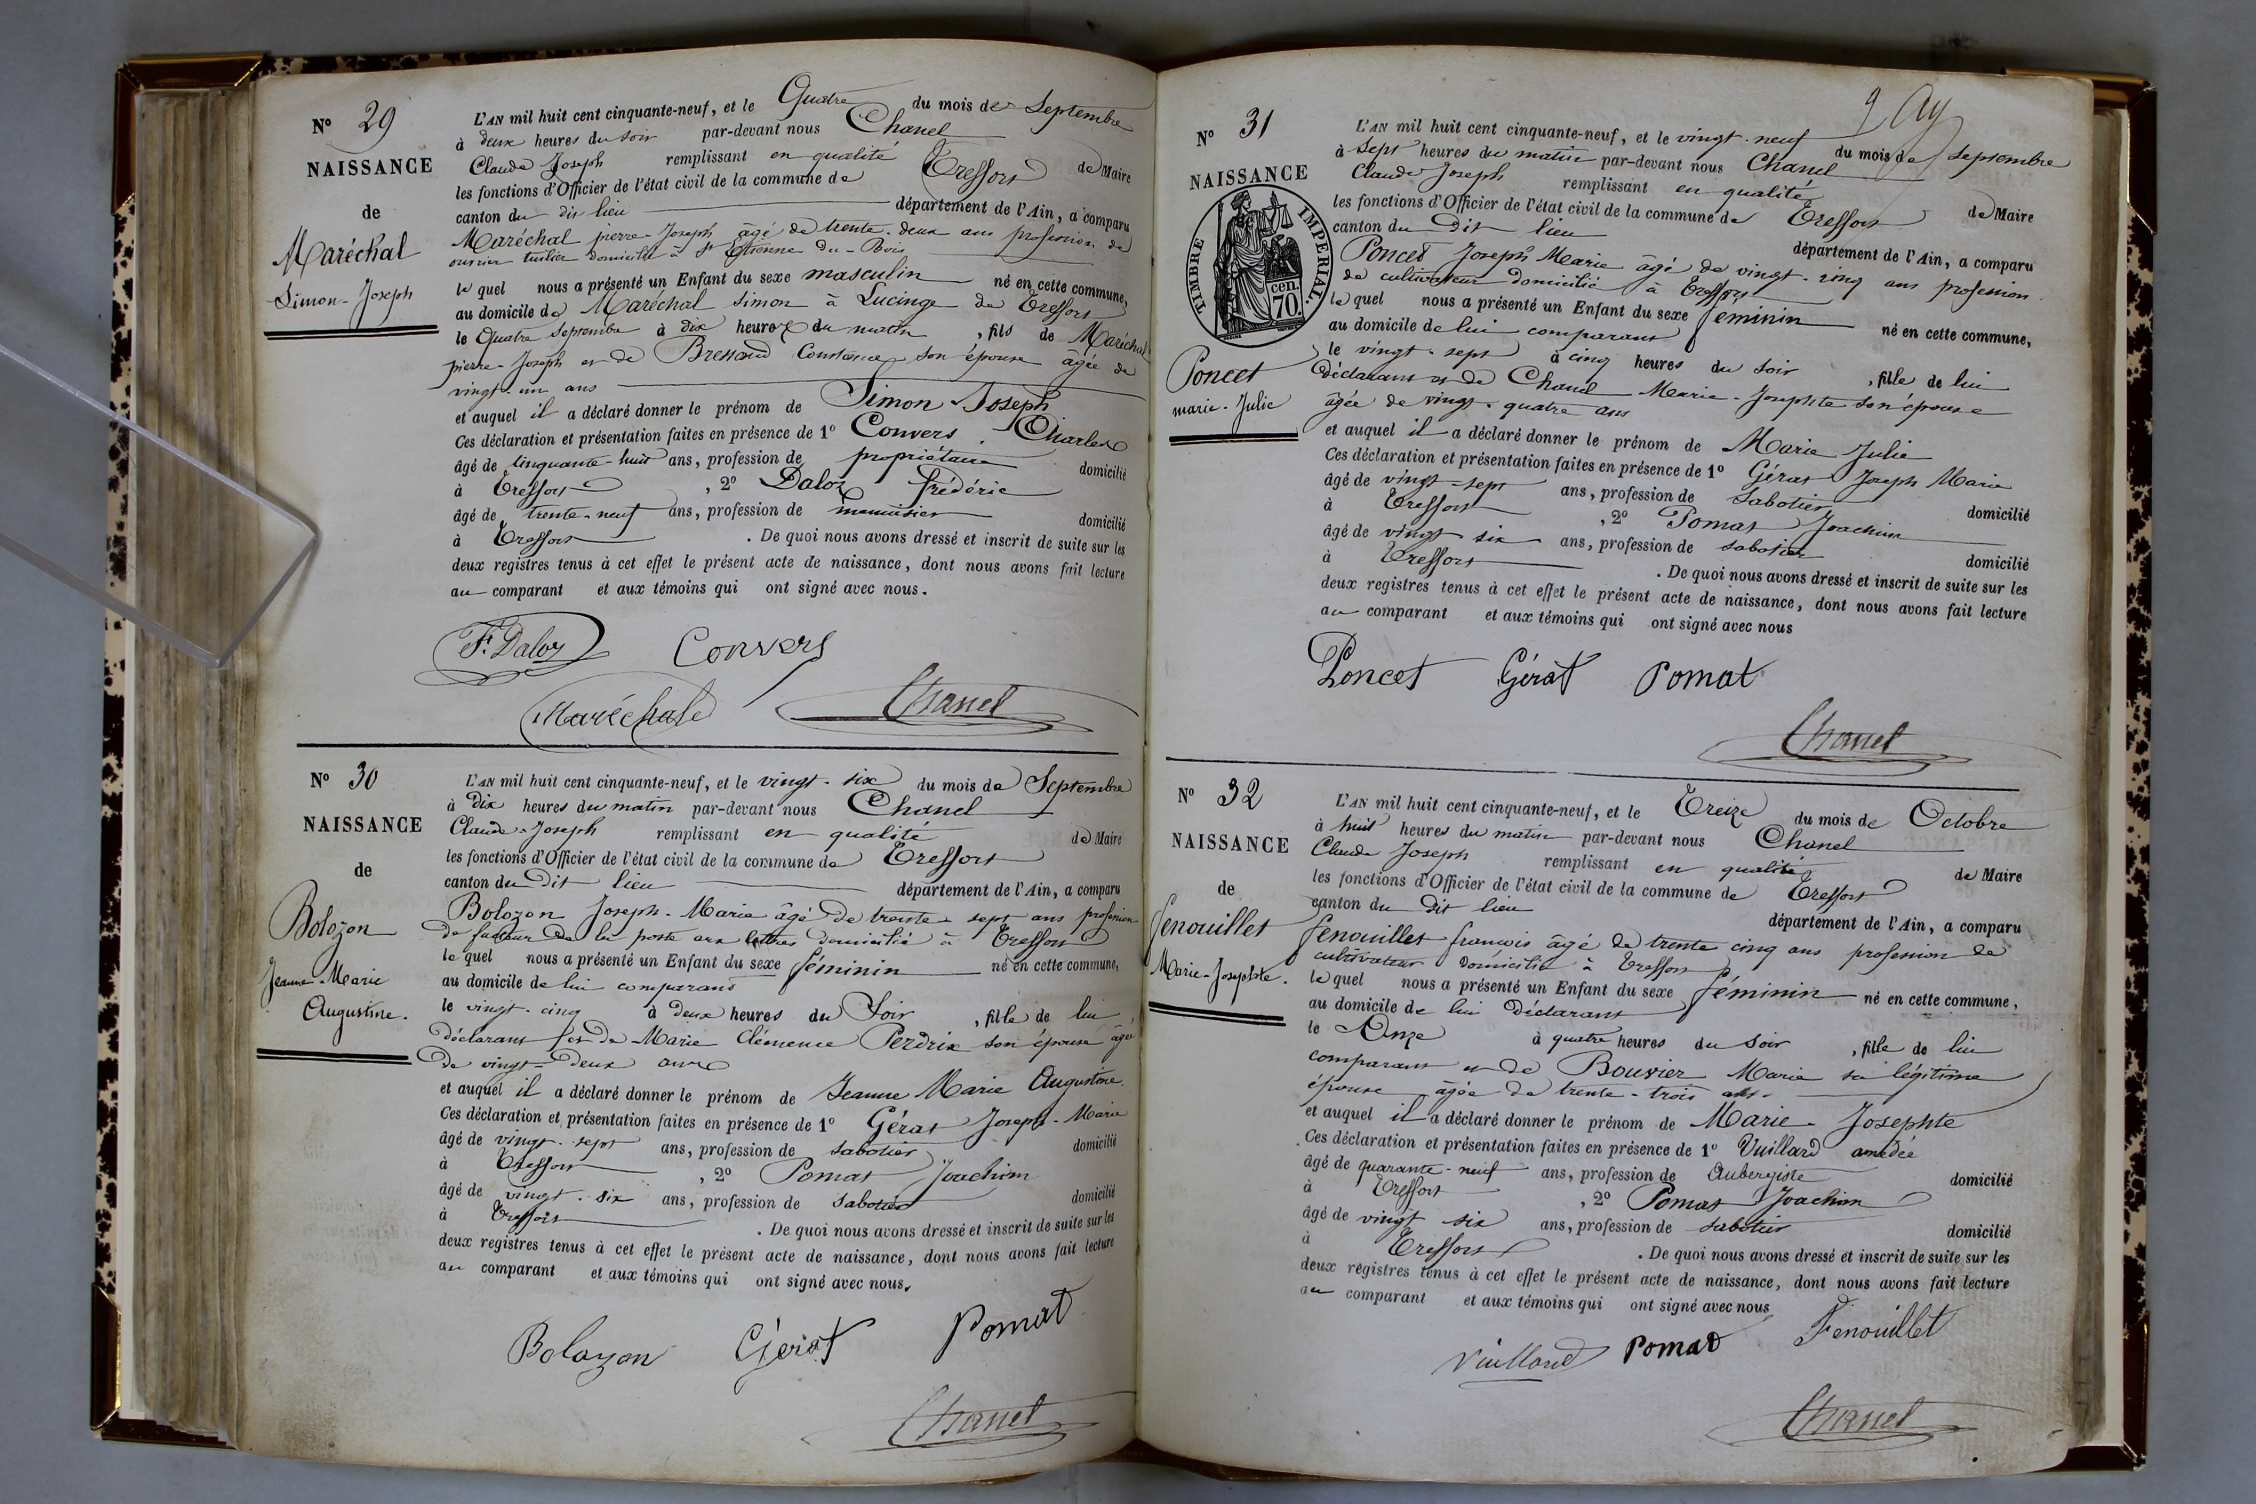 N° 29
NAISSANCE
de
Maréchal
Simon-Joseph
L'AN mil huit cent cinquante-neuf, et le Quatre du mois de Septembre
à deux heures du soir par-devant nous Chanel
Claude Joseph remplissant en qualité de Maire
les fonctions d'Officier de l'état civil de la commune de Treffort
canton du dit lieu département de l'Ain, a comparu
Maréchal pierre-Joseph âgé de trente-deux ans profession de
ouvrier tuilier domicilié à St Etienne du-Bois
le quel nous a présenté un Enfant du sexe masculin né en cette commune,
au domicile de Maréchal simon à Lucinge de Treffort
le Quatre Septembre à dix heures du matin, fils de Maréchal
pierre-Joseph et de Bressand Constance son épouse âgée de
vingt-un ans
et auquel il a déclaré donner le prénom de Simon Joseph
Ces déclaration et présentation faites en présence de 1° Convers Charles
âgé de cinquante-huit ans, profession de propriétaire domicilié
à Treffort, 2° Daloz frédéric
âgé de trente-neuf ans, profession de menuisier domicilié
à Treffort. De quoi nous avons dressé et inscrit de suite sur les
deux registres tenus à cet effet le présent acte de naissance, dont nous avons fait lecture
au comparant et aux témoins qui ont signé avec nous.
F. Daloz Convers
Maréchale Chanel
N° 30
NAISSANCE
de
Bolozon
Jeanne-Marie
Augustine.
L'AN mil huit cent cinquante-neuf, et le vingt-six du mois de Septembre
à dix heures du matin par-devant nous Chanel
Claude-Joseph remplissant en qualité de Maire
les fonctions d'Officier de l'état civil de la commune de Treffort
canton du Dit lieu département de l'Ain, a comparu
Bolozon Joseph-Marie âgé de trente-sept ans profession
de facteur de la poste aux lettres domicilié à Treffort
le quel nous a présenté un Enfant du sexe féminin né en cette commune,
au domicile de lui comparant
le vingt-cinq à deux heures du Soir, fille de lui
déclarant et de Marie Clémence Perdrix son épouse âgée
de vingt-deux ans
et auquel il a déclaré donner le prénom de Jeanne Marie Augustine.
Ces déclaration et présentation faites en présence de 1° Gérat Joseph-Marie
âgé de vingt-sept ans, profession de sabotier domicilié
à Treffort, 2° Pomat Joachim
âgé de vingt-six ans, profession de sabotier domicilié
à Treffort. De quoi nous avons dressé et inscrit de suite sur les
deux registres tenus à cet effet le présent acte de naissance, dont nous avons fait lecture
au comparant et aux témoins qui ont signé avec nous.
Bolozon Gérat Pomat
Chanel
N° 31
NAISSANCE
TIMBRE IMPERIAL.
70. cen.
Poncet
marie-Julie
L'AN mil huit cent cinquante-neuf, et le vingt-neuf du mois de Septembre
à Sept heures du matin par-devant nous Chanel
Claude Joseph remplissant en qualité de Maire
les fonctions d'Officier de l'état civil de la commune de Treffort
canton du Dit lieu département de l'Ain, a comparu
Poncet Joseph Marie âgé de vingt-cinq ans profession
de cultivateur domicilié à Treffort
le quel nous a présenté un Enfant du sexe féminin né en cette commune,
au domicile de lui comparant
le vingt-sept à cinq heures du soir, fille de lui
déclarant et de Chanel Marie-Josephte son épouse
âgée de vingt-quatre ans
et auquel il a déclaré donner le prénom de Marie Julie
Ces déclaration et présentation faites en présence de 1° Gérat Joseph Marie
âgé de vingt-sept ans, profession de sabotier domicilié
à Treffort, 2° Pomat Joachim
âgé de vingt six ans, profession de sabotier domicilié
à Treffort. De quoi nous avons dressé et inscrit de suite sur les
deux registres tenus à cet effet le présent acte de naissance, dont nous avons fait lecture
au comparant et aux témoins qui ont signé avec nous
Poncet Gérat Pomat
Chanel
N° 32
NAISSANCE
de
Fenouillet
Marie-Josephte.
L'AN mil huit cent cinquante-neuf, et le Treize du mois de Octobre
à huit heures du matin par-devant nous Chanel
Claude Joseph remplissant en qualité de Maire
les fonctions d'Officier de l'état civil de la commune de Treffort
canton du dit lieu département de l'Ain, a comparu
fenouillet françois âgé de trente cinq ans profession de
cultivateur domicilié à Treffort
le quel nous a présenté un Enfant du sexe féminin né en cette commune,
au domicile de lui déclarant
le Onze à quatre heures du soir, fille de lui
comparant et de Bouvier Marie sa légitime
épouse âgée de trente-trois ans.
et auquel il a déclaré donner le prénom de Marie Josephte
Ces déclaration et présentation faites en présence de 1° Vuillard amédée
âgé de quarante-neuf ans, profession de Aubergiste domicilié
à Treffort, 2° Pomat Joachim
âgé de vingt six ans, profession de sabotier domicilié
à Treffort. De quoi nous avons dressé et inscrit de suite sur les
deux registres tenus à cet effet le présent acte de naissance, dont nous avons fait lecture
au comparant et aux témoins qui ont signé avec nous
Vuillard Pomat Fenouillet
Chanel